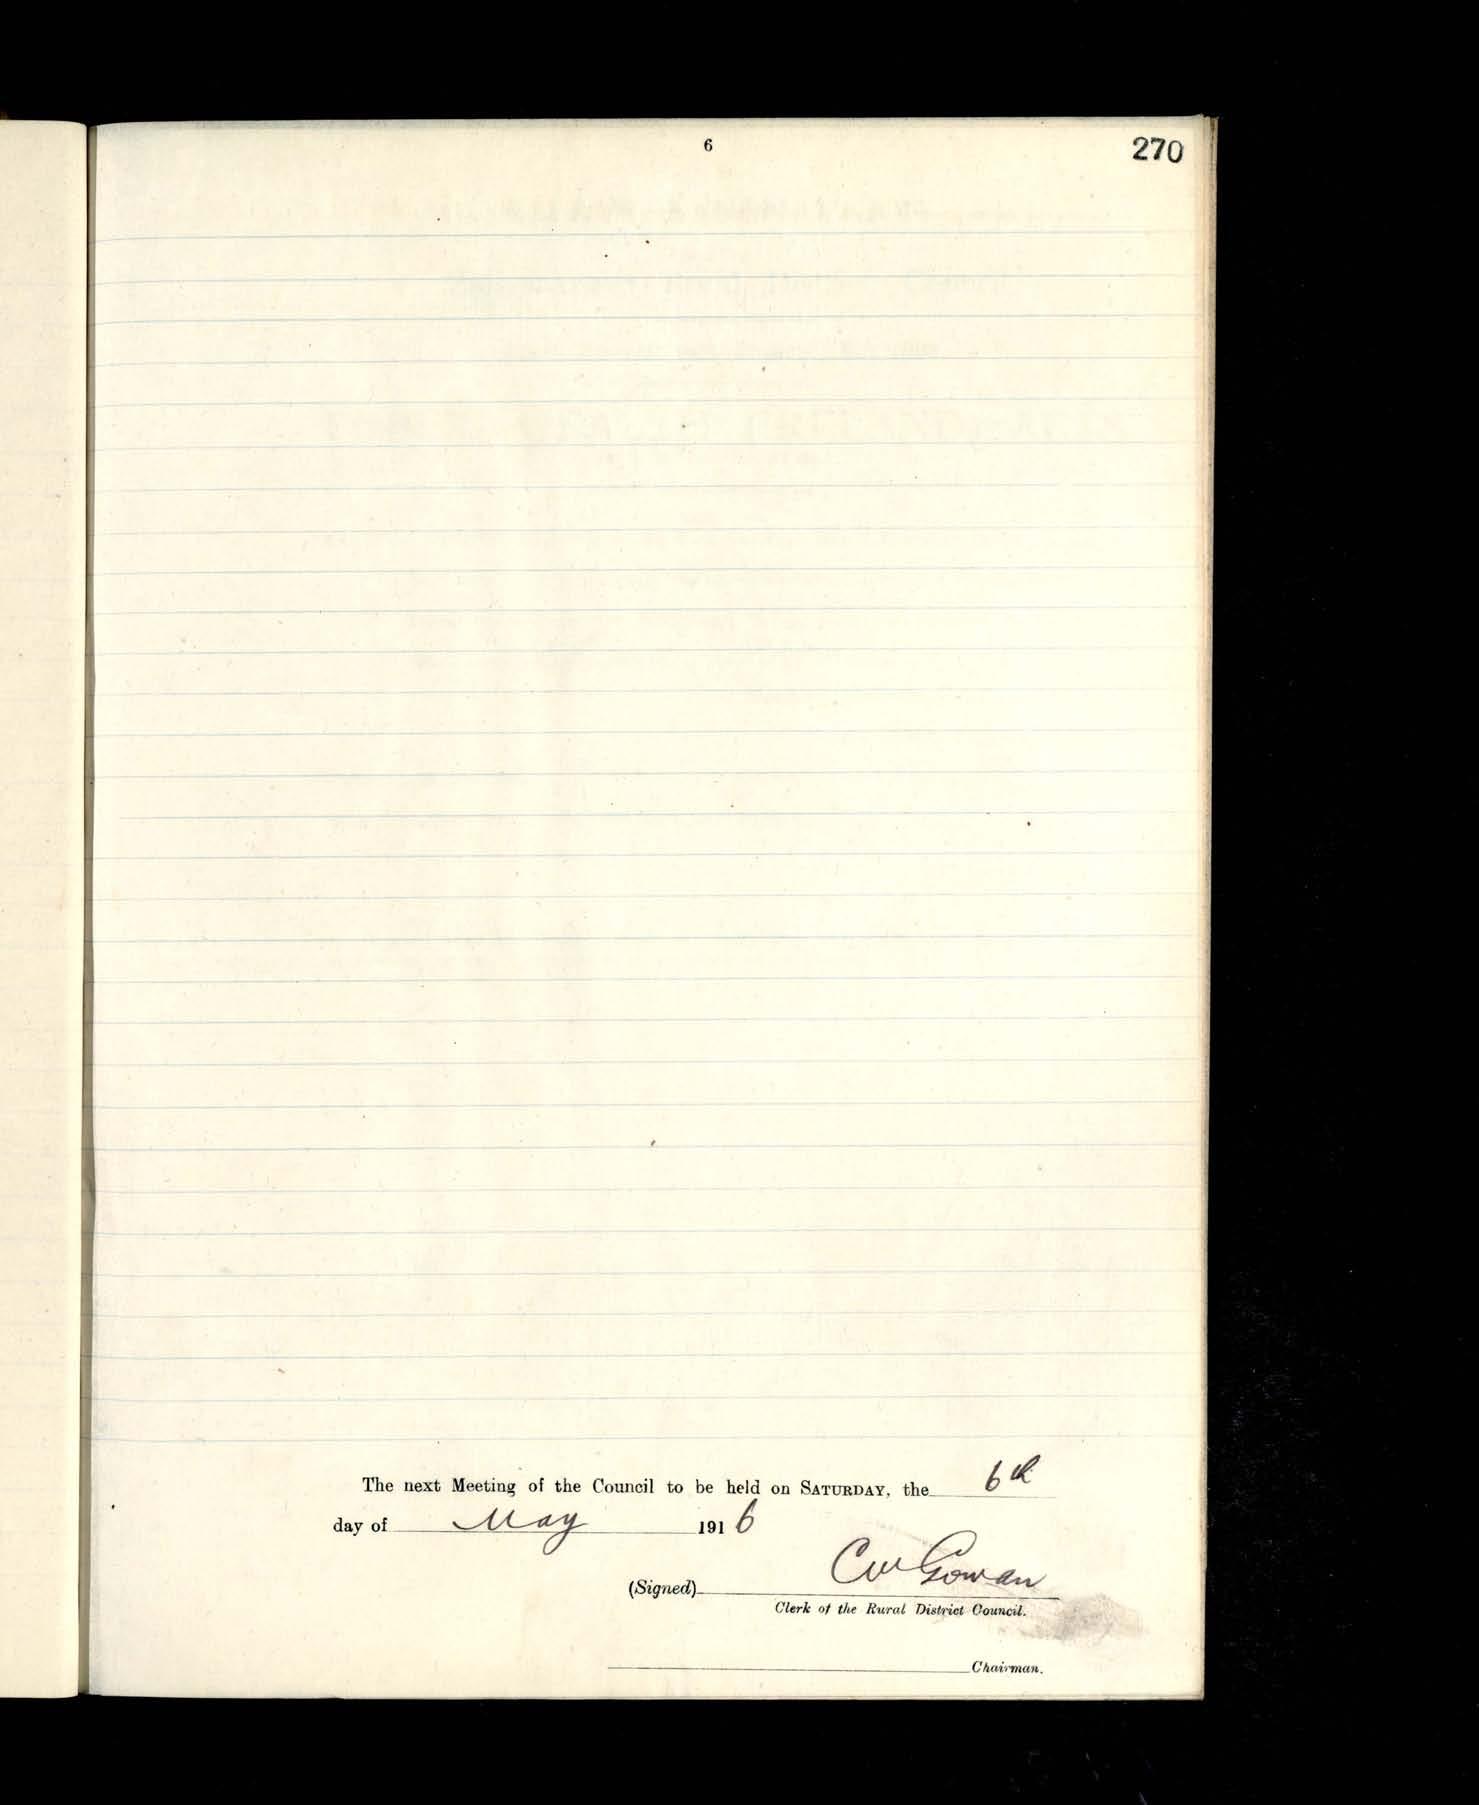 6
270
The next Meeting of the Council to be held on SATURDAY, the 6th
day of May 1916
(Signed) CW Gowan
Clerk of the Rural District Council.
Chairman.